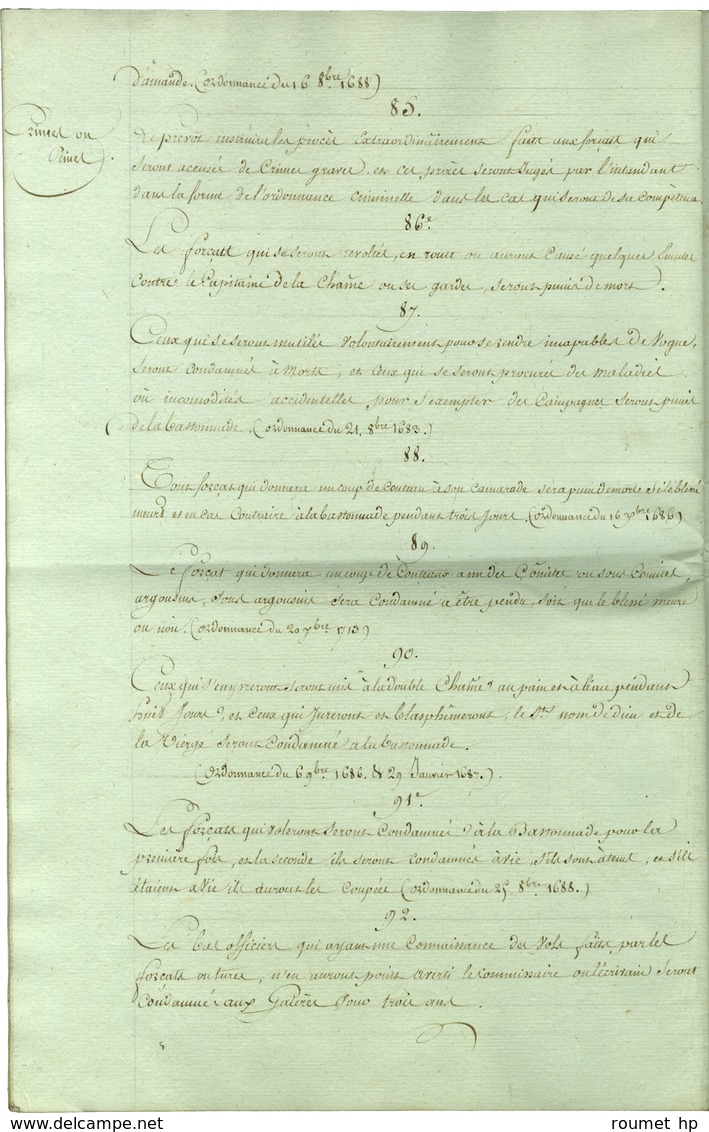 D'amande. (ordonnance du 16 8bre 1688)
85.
Crimes ou
Peines
Le prévôt instruira les procès Extraordinairement faits aux forçats qui
seront accusés de Crimes graves et ces procès seront Jugés par l'intendant
dans la forme de l'ordonnance criminelle dans les cas qui seront de sa compétence
86e.
Les forçats qui se seront revoltés, en route ou auront Causé quelques
contre le Capitaine de la Chaîne ou ses gardes, seront punis de mort.
87.
Ceux qui se seront mutilés volontairement pour se rendre incapables de Vogue,
seront condamnés à Mort, et Ceux qui se seront procurés des maladies
ou incomodités accidentelles pour s'exempter des Campagnes seront punis
de la bastonnade, (ordonnance du 21. 8bre 1683.)
88.
Tout forçat qui donnera un coup de couteau à son camarade sera puni de mort si le blessé
meurt, et en cas Contraire à la bastonnade pendant trois Jours. (ordonnance du 16 1686)
89.
Le forçat qui donnera un coup de Couteau a un des Comites ou sous Comites,
argousins, sous argousins sera Condamné a être pendu, soit que le blessé meure
ou non. (ordonnance du 20 7bre 1713)
90.
Ceux qui s'enyvreront seront mis à la double Chaîne au pain et à l'eau pendant
huit Jours, et Ceux qui Jureront et blasphêmeront, le St. nom de dieu et de
la Vierge seront Condamné a la bastonnade.
(ordonnance du 6 9bre 1686. & 29 Janvier 1687.)
91e.
Les forçats qui voleront seront Condamnés à la Bastonnade pour la
première fois, et la seconde ils seront condamnés à vie, s'ils sont à tems, et s'ils
étaient a Vie ils auront les coupées (ordonnance du 25 8bre 1688.)
92.
Les bas officiers qui ayant une Connaissance des Vols faits par les
forçats ou turcs, n'en auront point averti le commissaire ou l'écrivain seront
Condamnés aux Galères Pour trois ans.
roumet hp